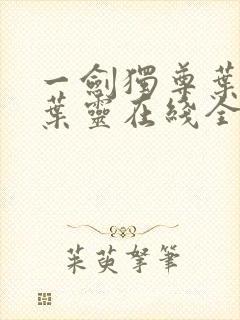 一劍獨尊葉
葉靈在綫全
茱萸孥筆